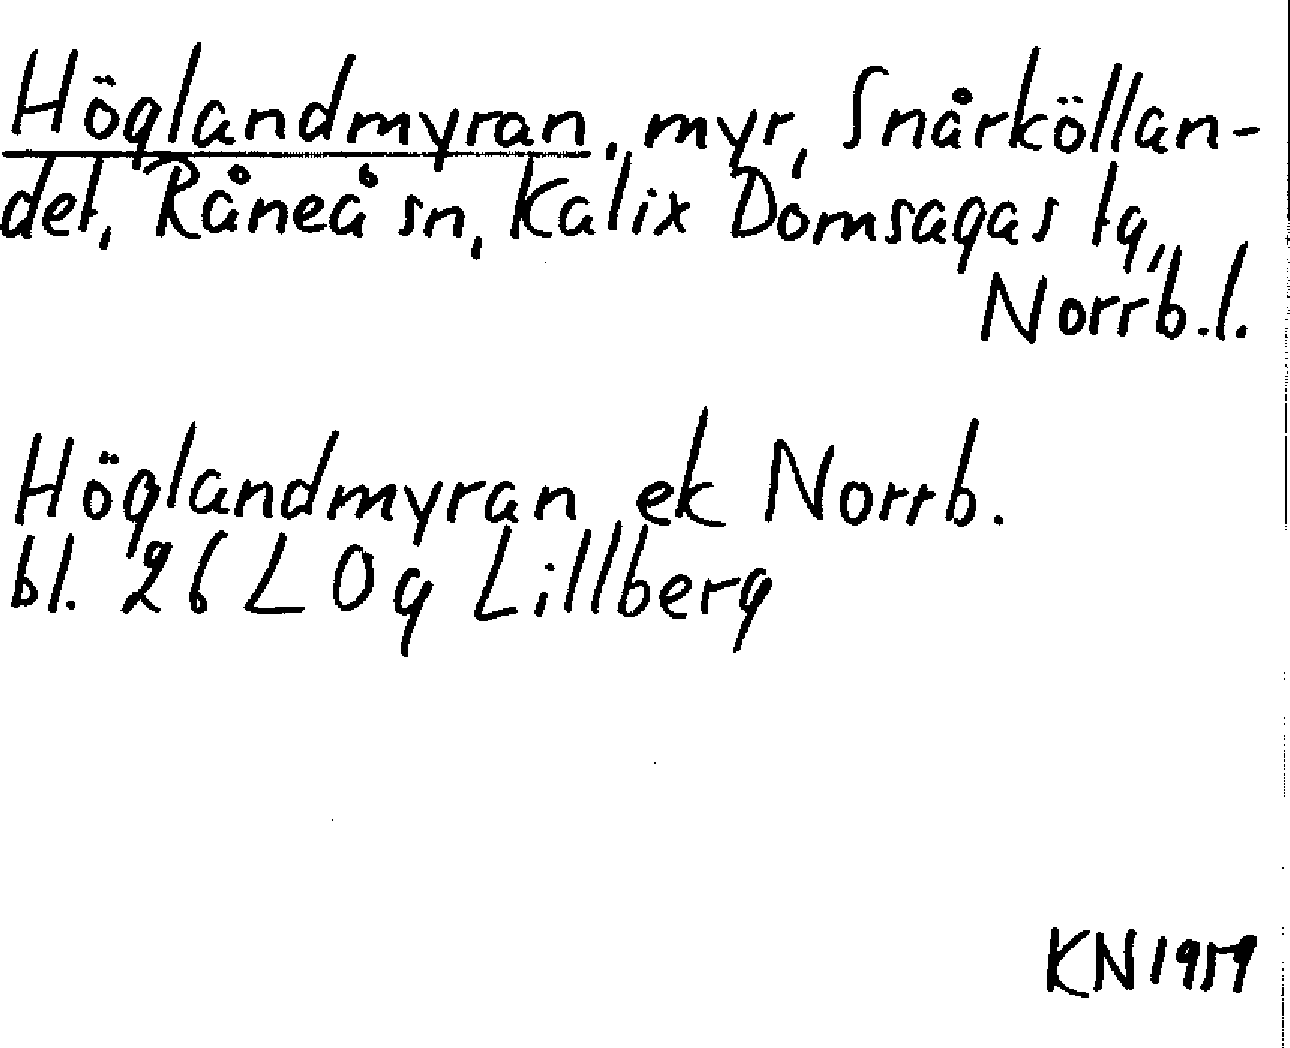 Höglandmyran, myr, Snårköllan-
det, Råneå sn, Kalix Domsagas tg,
Norrb.l.
Höglandmyran ek Norrb.
bl. 26 L 0g Lillberg
KN 1959